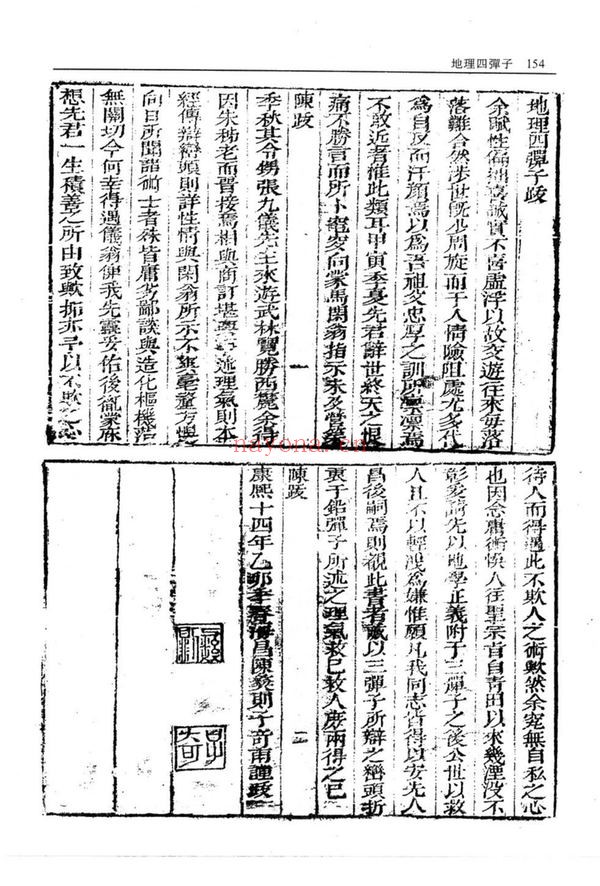 地理四彈子 154
地理四彈子跋
余賦性偏迂喜誠實不喜虛浮以故交遊往來每落
落難合然涉世既少周旋而于人情險阻處尤多
為自反而汗顏焉以為吾祖父忠厚之訓所
不敢近者惟此類耳甲寅季夏先君辭世終天之恨
痛不勝言而所卜窀穸向蒙馬閑翁指示未及營葬
陳跋 一
季秋其令甥張九儀先生來遊武林覽勝西
因朱 老而晋接焉相與商訂堪輿 述理氣則本
經傳辯巒頭則詳性情與閑翁所示不 毫釐方與
向日所聞諸術士者殊皆庸劣鄙談與造化樞機沿
無關切今何幸得遇儀翁使我先靈妥佑後
想先君一生積善之所由致歟抑亦予以不欺之心
待人而得遇此不欺人之術歟然余寔無自私之心
也因念庸術悞人往聖宗旨自青田以來幾湮沒不
彰爰請先以地學正義附于三彈子之後公世以救
人且不以輕淺為嫌惟願凡我同志皆得以安先人
昌後嗣焉則覩此書者誠以三彈子所辯之巒頭折
衷于鉛彈子所述之理氣救已救人庶兩得之已
陳跋 二
康熙十四年乙卯季春海昌陳羲則子奇甫謹跋
nayona.cn